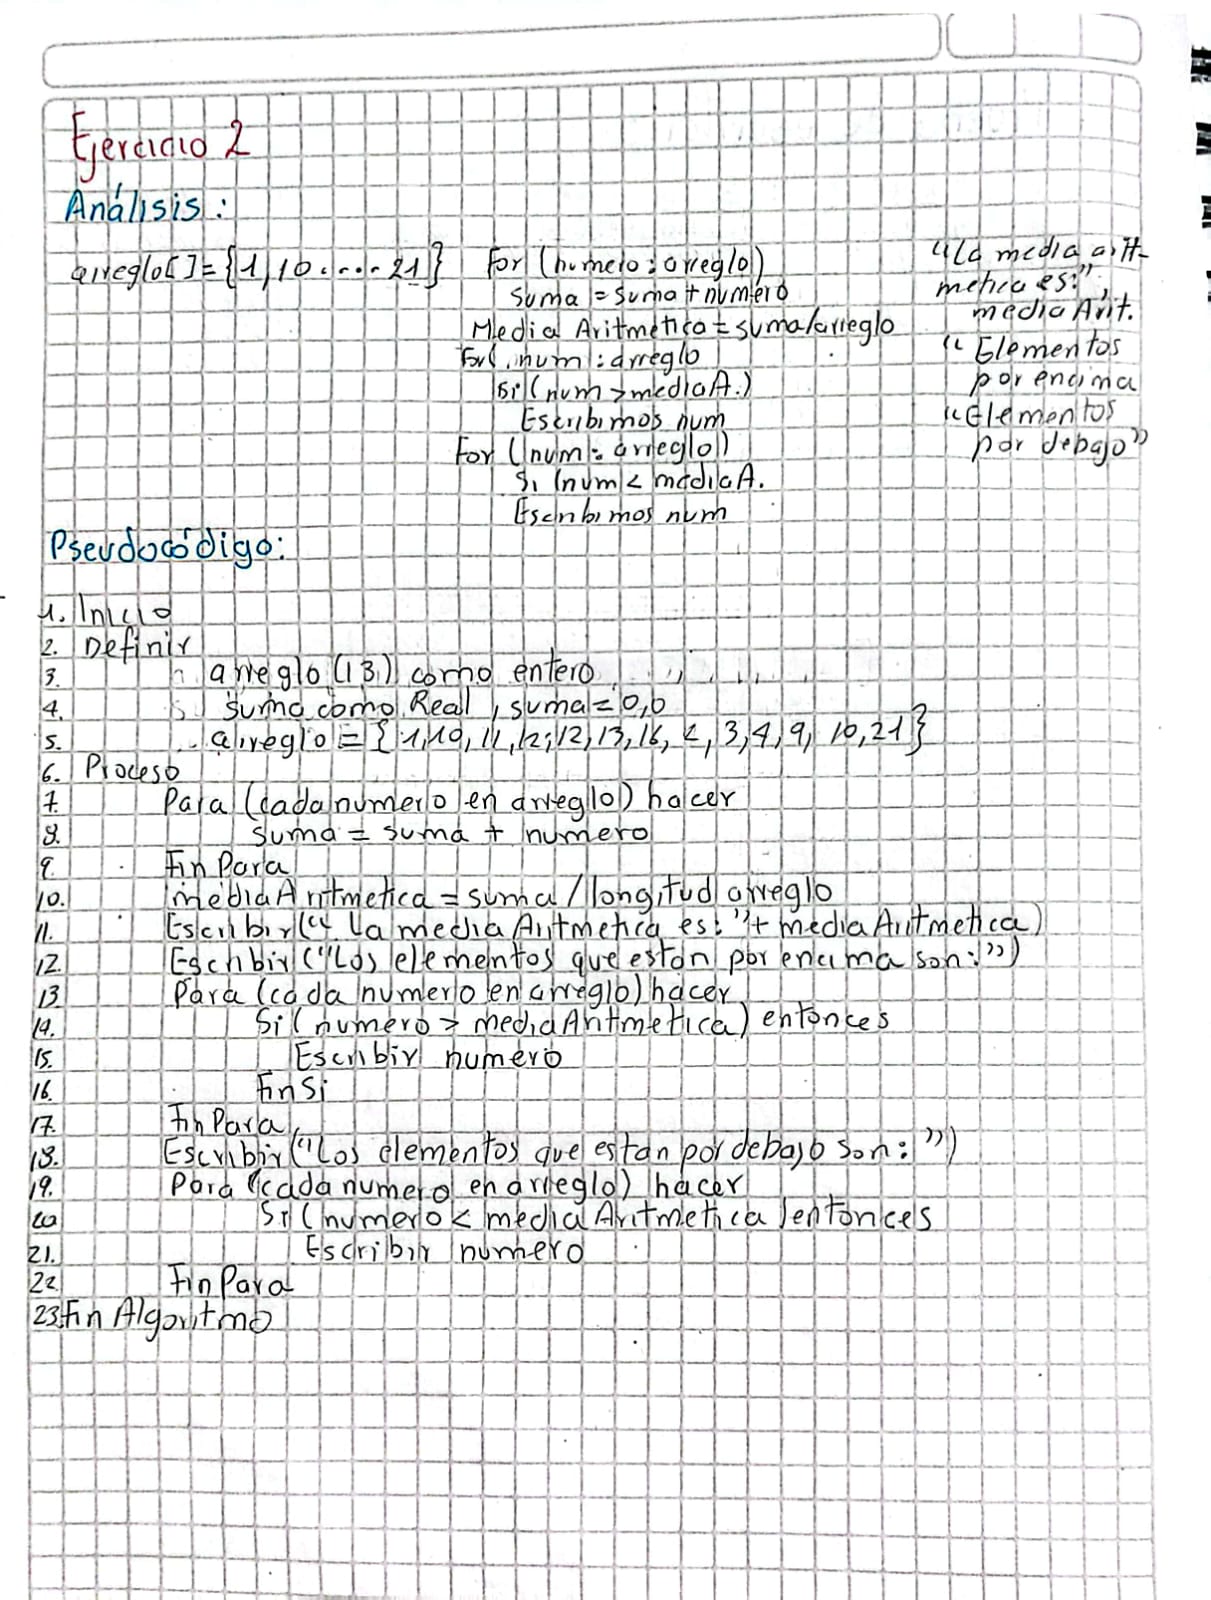 Ejercicio 2
Análisis:
arreglo[]={1,10....21}
For (numero: arreglo)
suma = suma + numero
Media Aritmetica = suma/arreglo
For( num: arreglo
Si (num > mediaA.)
Escribimos num
For (num: arreglo)
Si (num < mediaA.
Escribimos num
"La media arit-
metica es:",
media Arit.
"Elementos
por encima
"Elementos
por debajo"
Pseudocódigo:
1. Inicio
2. Definir
3. arreglo (13) como entero
4. suma como Real, suma = 0,0
5. arreglo = {1,10, 11, 12, 12, 13, 16, 2, 3, 4, 9, 10, 21}
6. Proceso
7. Para (cada numero en arreglo) hacer
8. suma = suma + numero
9. Fin Para
10. mediaAritmetica = suma / longitud arreglo
11. Escribir ("La mediaAritmetica es: "+ mediaAritmetica)
12. Escribir ("Los elementos que estan por encima son:")
13 Para (cada numero en arreglo) hacer
14. Si (numero > mediaAritmetica) entonces
15. Escribir numero
16. Fin Si
17. Fin Para
18. Escribir ("Los elementos que estan por debajo son: ")
19. Para (cada numero en arreglo) hacer
20 Si (numero < mediaAritmetica) entonces
21. Escribir numero
22 Fin Para
23. Fin Algoritmo